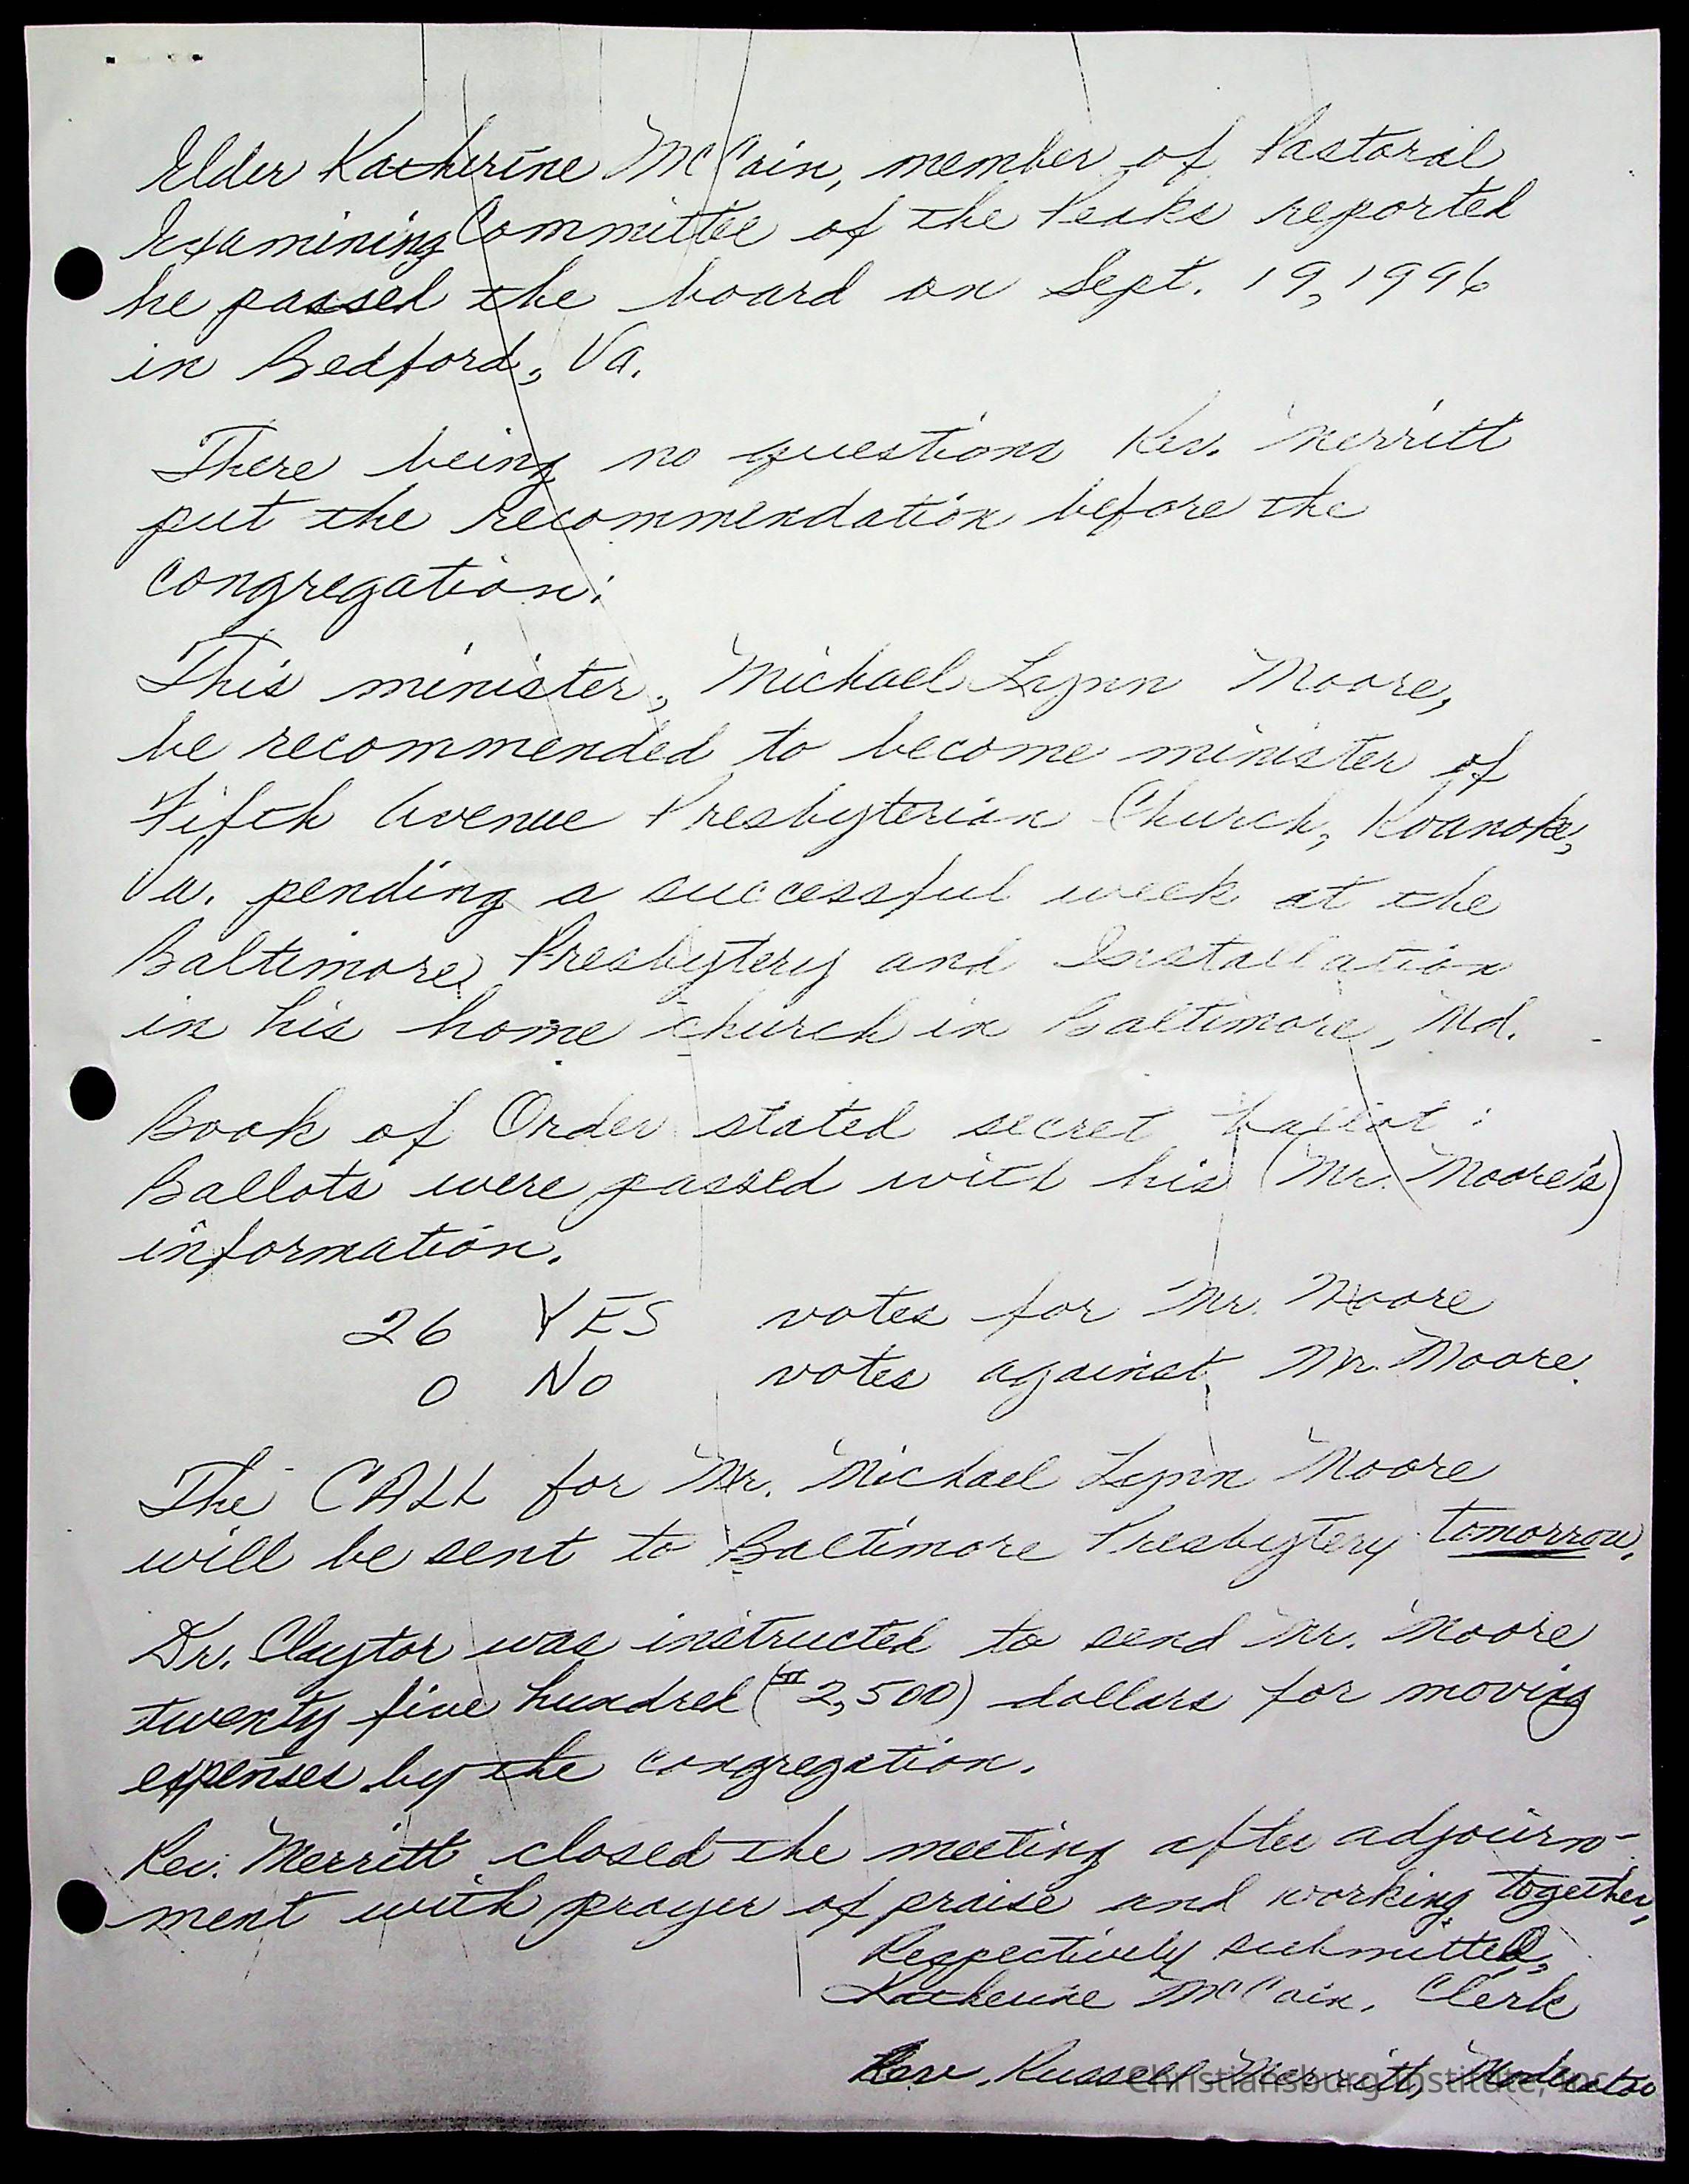 Elder Katherine McCain, member of Pastoral
Examining Committee of the Peaks reported
he passed the board on Sept. 19, 1996
in Bedford, Va.
There being no questions Rev. Merritt
put the recommendation before the
congregation:
This minister, Michael Lynn Moore,
be recommended to become minister of
Fifth Avenue Presbyterian Church, Roanoke,
Va. pending a successful week at the
Baltimore Presbytery and Installation
in his home church in Baltimore, Md.
Book of Order stated secret ballot:
Ballots were passed with his (Mr. Moore's)
information.
26 YES votes for Mr. Moore
0 No votes against Mr. Moore.
The CALL for Mr. Michael Lynn Moore
will be sent to Baltimore Presbytery tomorrow.
Dr. Claytor was instructed to send Mr. Moore
twenty five hundred ($2,500) dollars for moving
expenses by the congregation.
Rev. Merritt closed the meeting after adjourn-
ment with prayer of praise and working together,
Respectively submitted,
Katherine McCain, Clerk
Rev. Russell Merritt, Moderator
Christiansburg Institute, Inc.